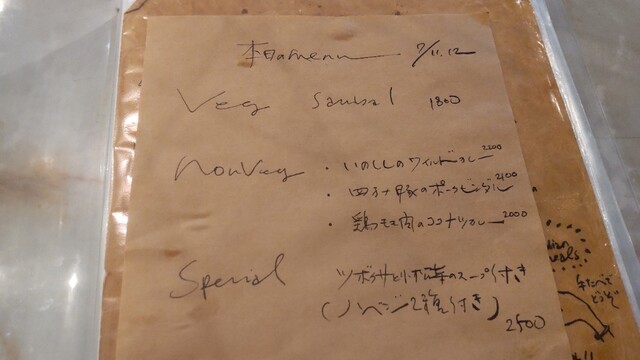 本日のmenu 7/11.12
Veg Sambal 1800
NonVeg ・いのししのワイルドカレー 2200
・四万十豚のポークビンダルー 2100
・鶏モモ肉のココナツカレー 2000
Special ツボクサと小松菜のスープ付き
(ハベジ2種付き)
2500